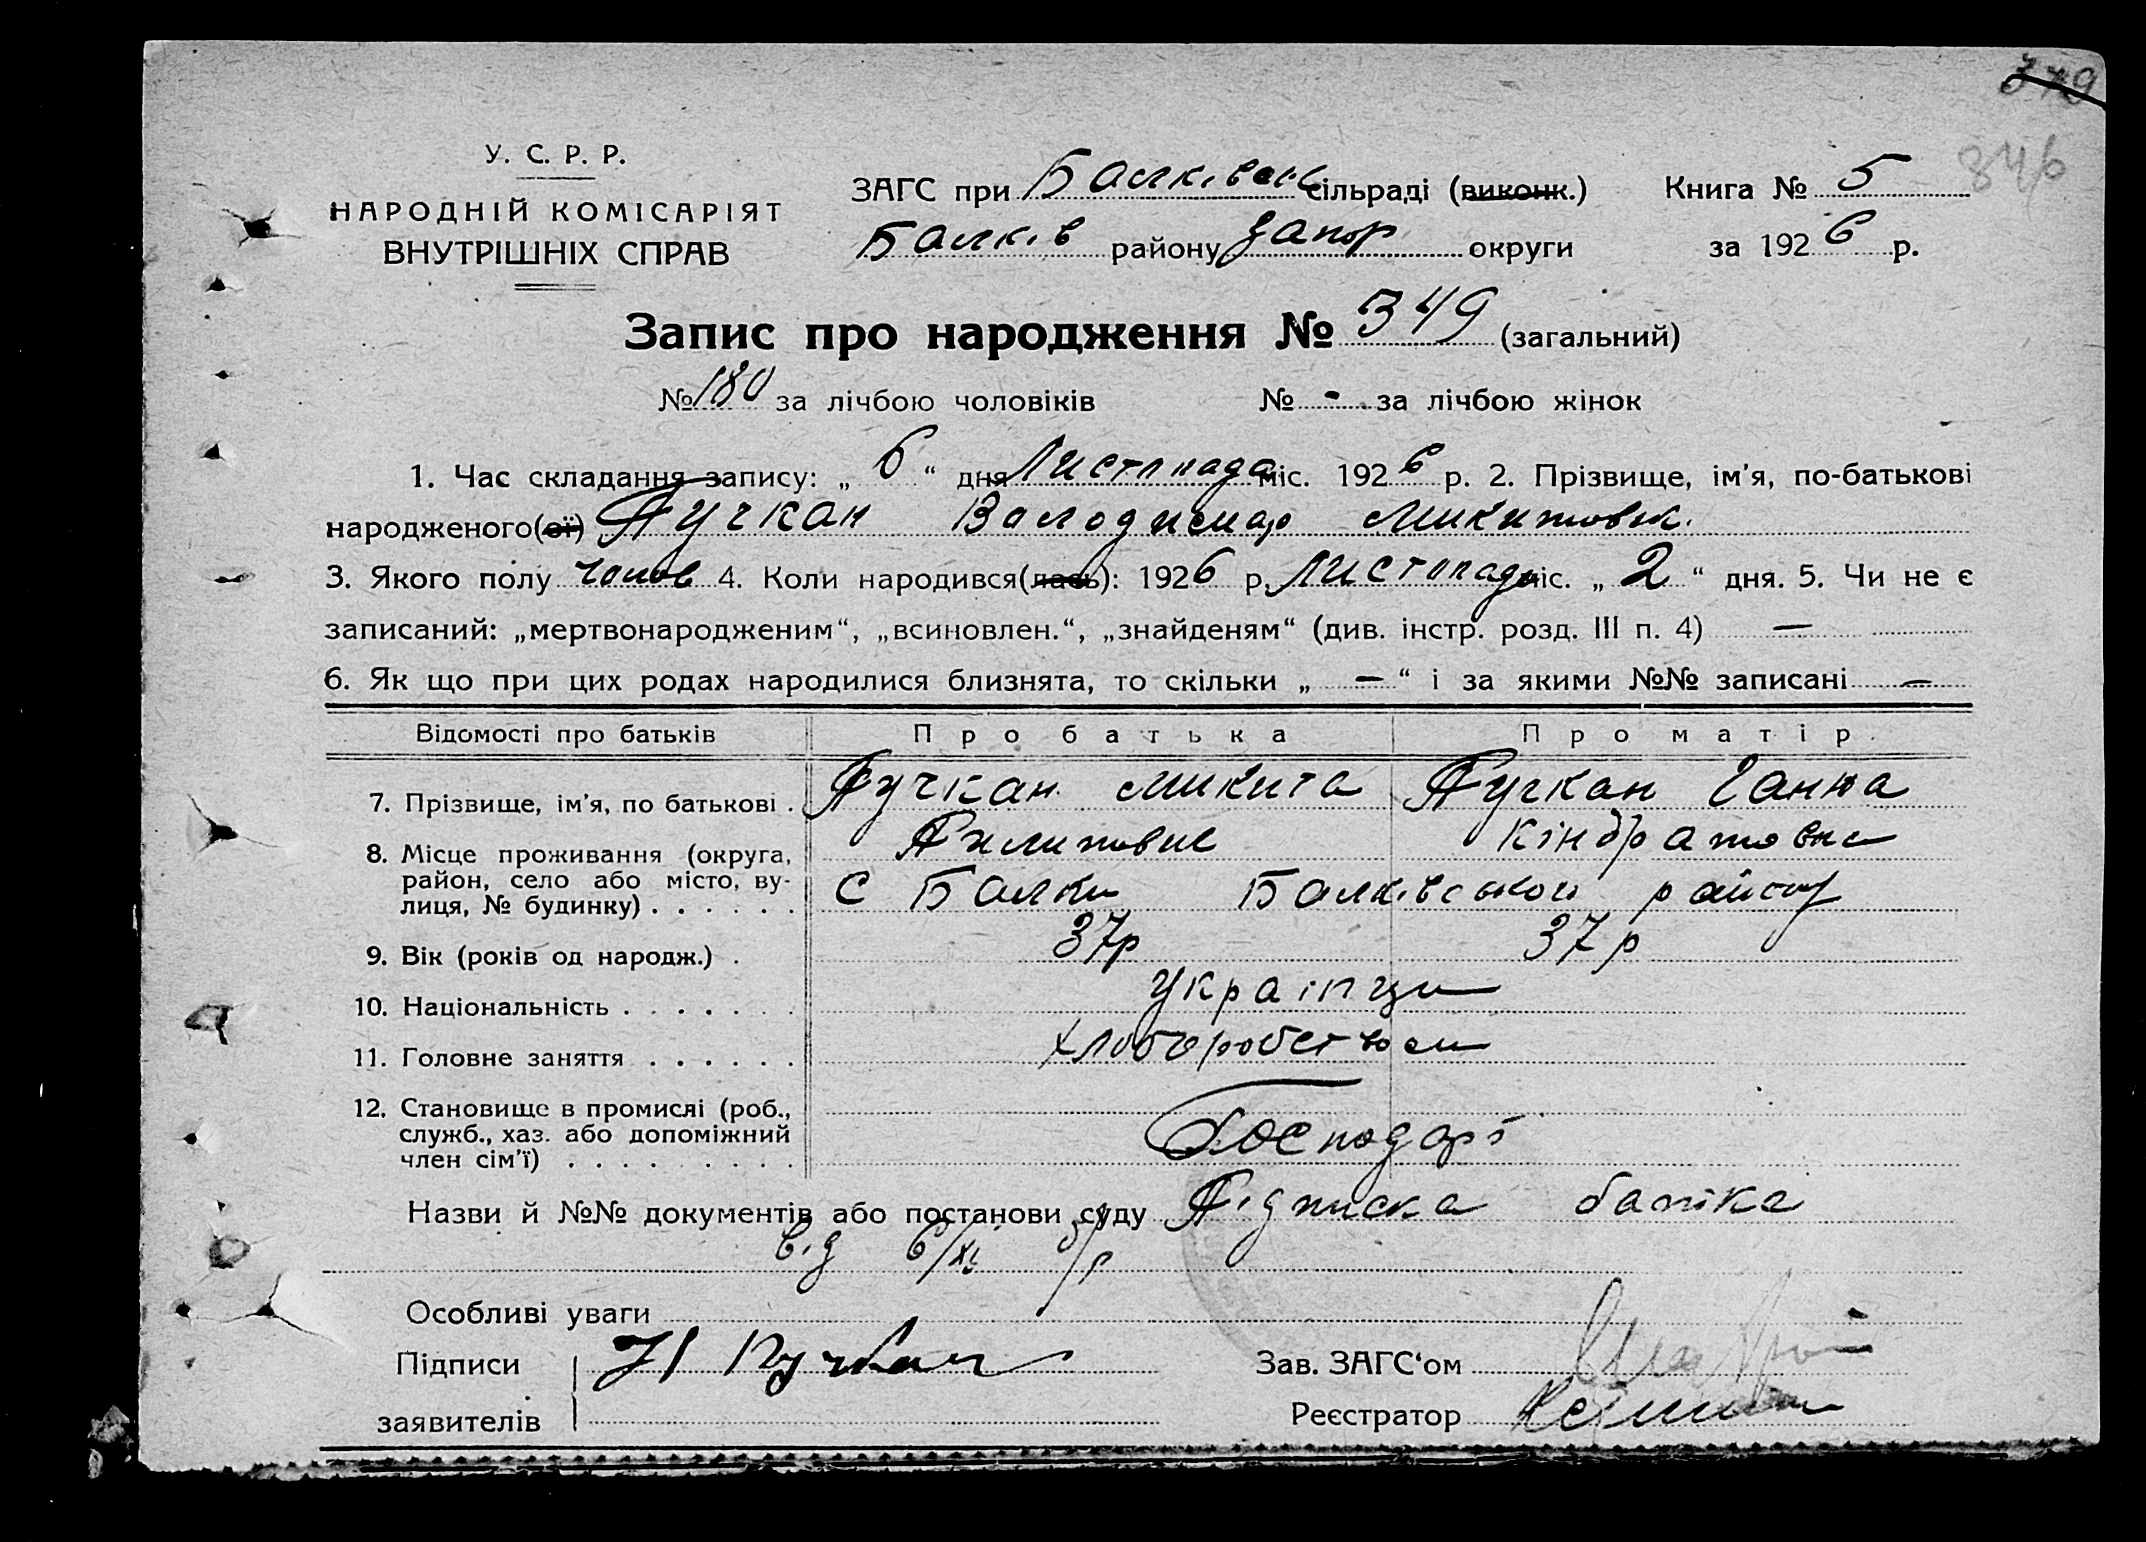 379
346
У. С. Р. Р.
НАРОДНІЙ КОМІСАРІЯТ
ВНУТРІШНІХ СПРАВ
ЗАГС при Балківськ сільраді (виконк.) Книга № 5
Балків району Запор округи за 1926 р.
Запис про народження № 349 (загальний)
№ 180 за лічбою чоловіків № - за лічбою жінок
1. Час складання запису: „ 6 “ дня Листопада міс. 1926 р. 2. Прізвище, ім’я, по-батькові
народженого(ої) Пучкан Володимир Микитович
3. Якого полу чолов 4. Коли народився(лась): 1926 р. Листопада міс. „ 2 “ дня. 5. Чи не є
записаний: „мертвонародженим“, „всиновлен.“, „знайденям“ (див. інстр. розд. III п. 4) —
6. Як що при цих родах народилися близнята, то скільки „ — “ і за якими №№ записані —
Відомості про батьків Про батька Про матір.
7. Прізвище, ім’я, по батькові . Пучкан Микита Пучкан Ганна
Пилипович Кіндратовна
8. Місце проживання (округа,
район, село або місто, ву-
лиця, № будинку) . . . . . . С Балки Балківської району
9. Вік (років од народж.) . 37р 37 р
10. Національність . . . . . . . українци
11. Головне заняття . . . . . . хлоборобством
12. Становище в промислі (роб.,
служб., хаз. або допоміжний
член сім’ї) . . . . . . . . . Господарі
Назви й №№ документів або постанови суду Підписка батька
від 6/XI
Особливі уваги
Підписи Н Пучкан Зав. ЗАГС‘ом
заявителів Реєстратор